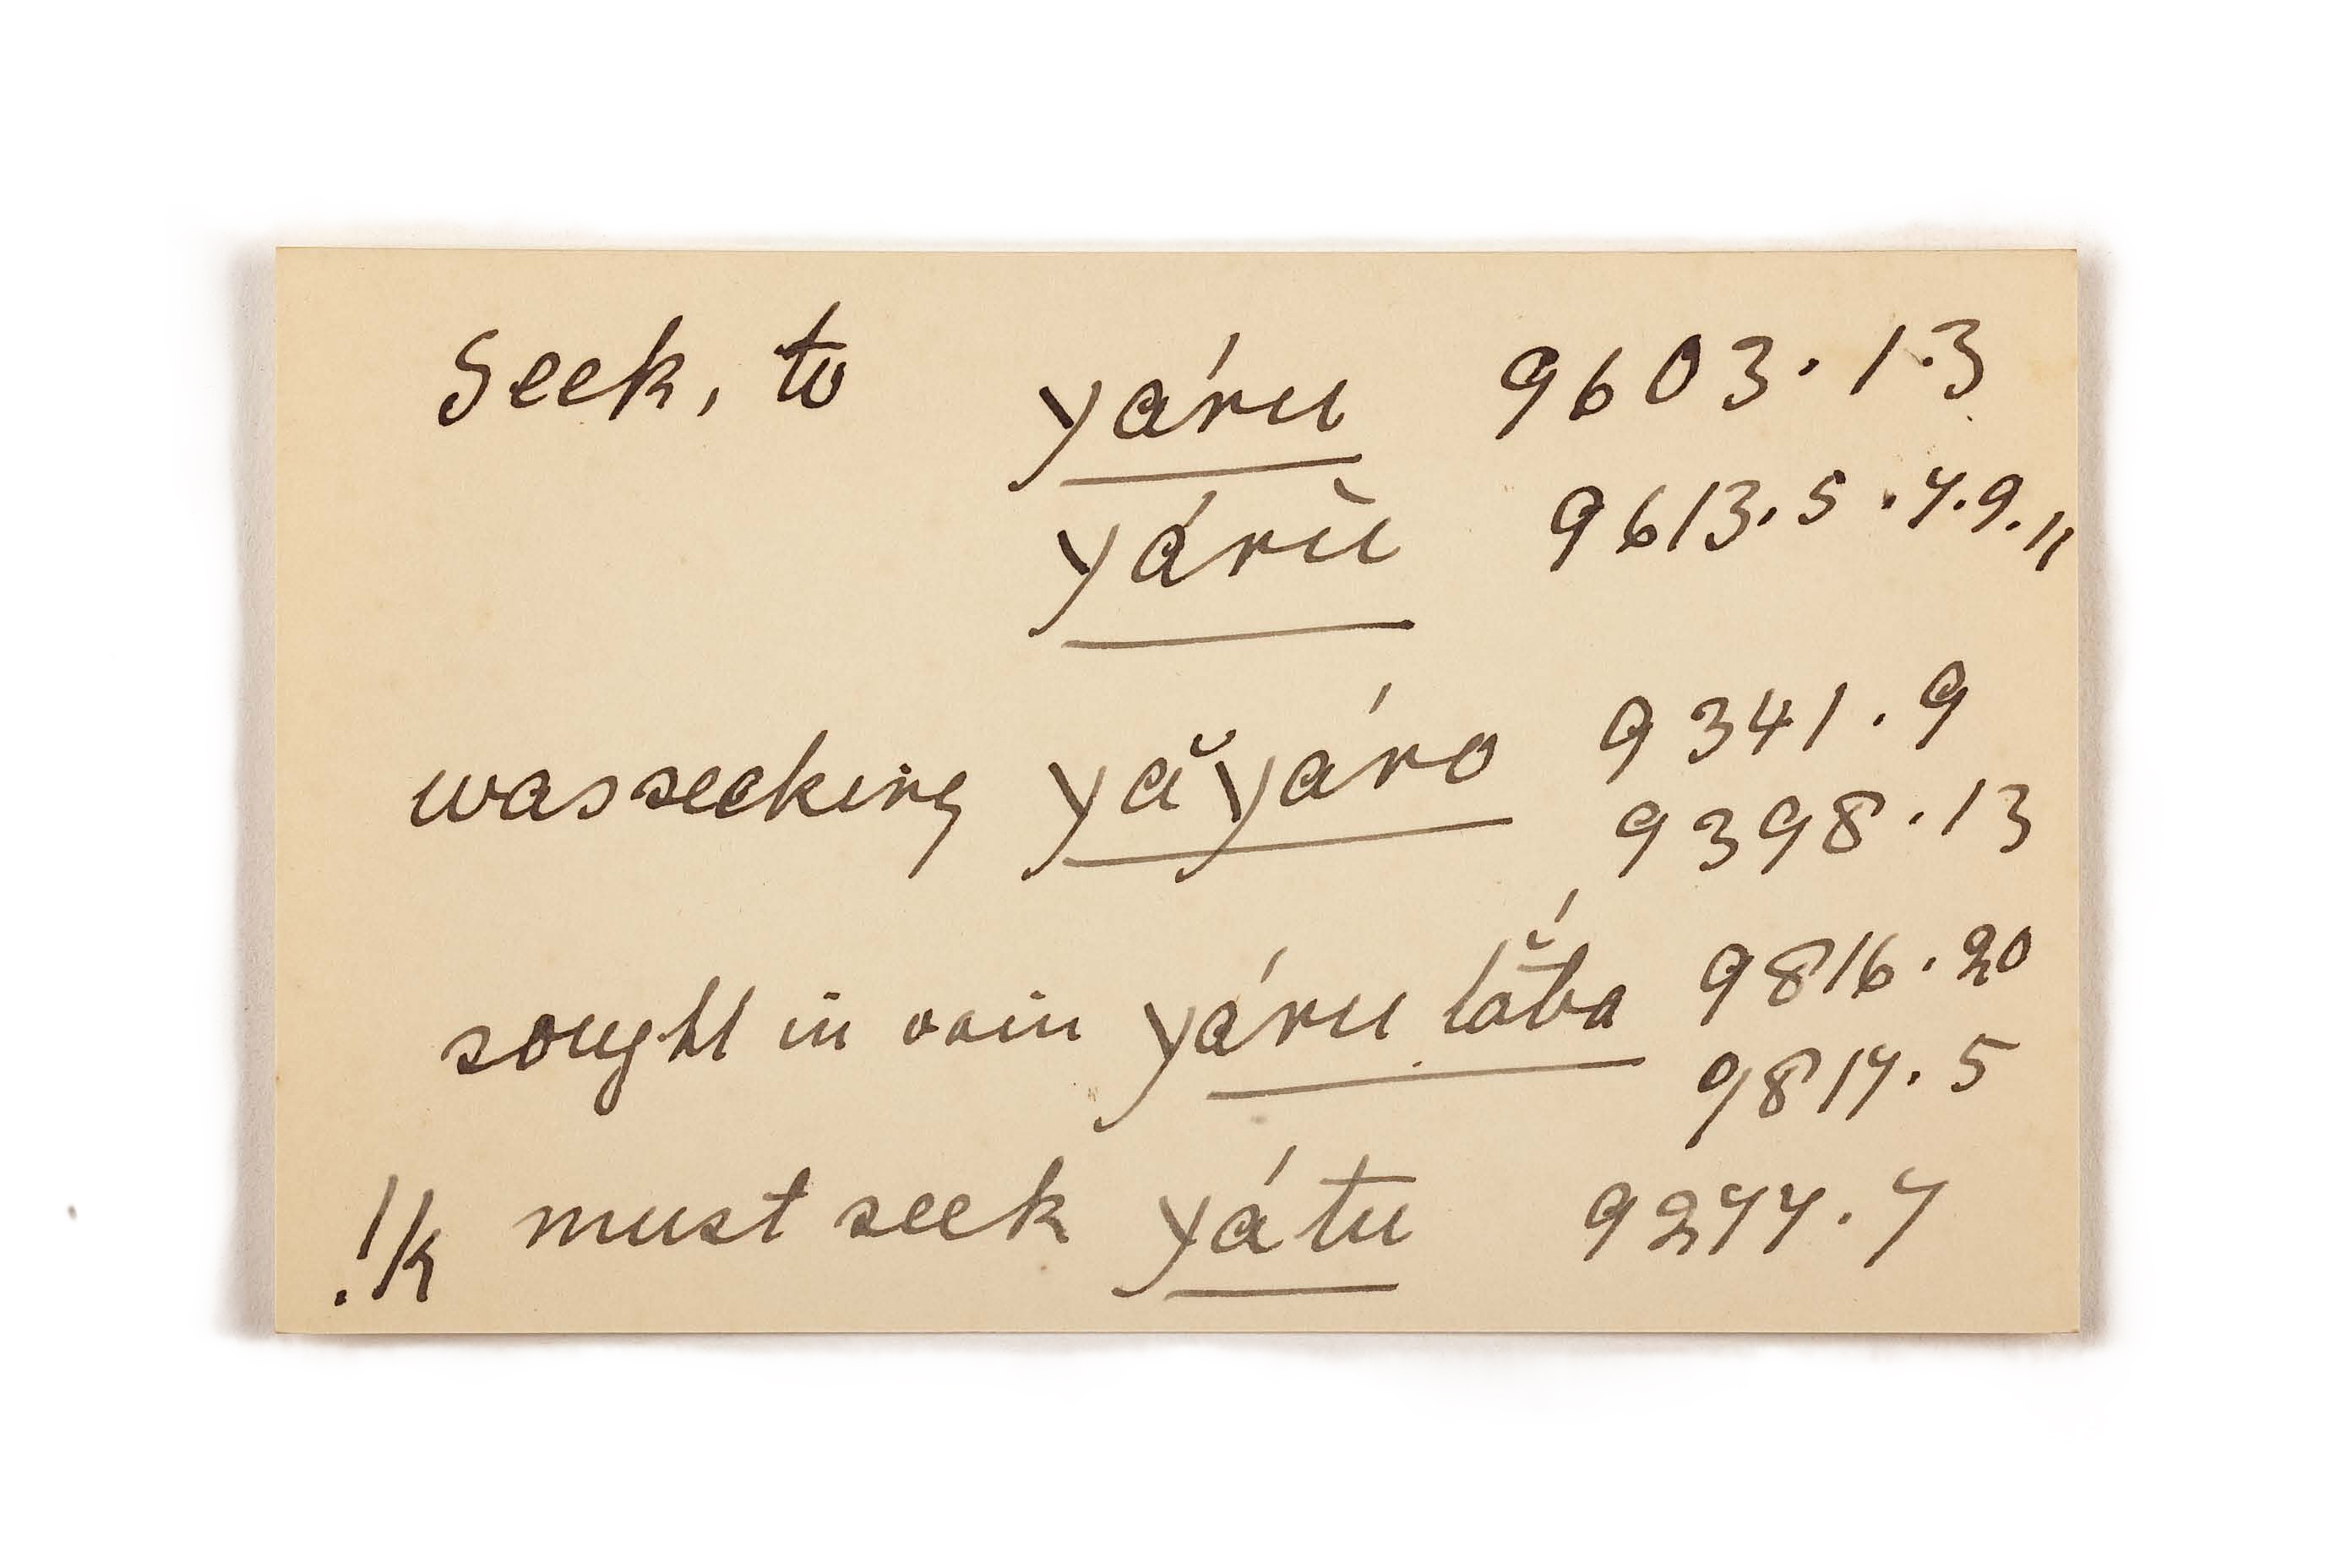 Seek, to yáru 9603. 1.3
yárŭ 9613. 5 . 7. 9. 11
was seeking yăyáro 9341. 9
9398. 13
sought in vain yáru tắba 9816. 20
9817. 5
!k must seek yátu 9277. 7